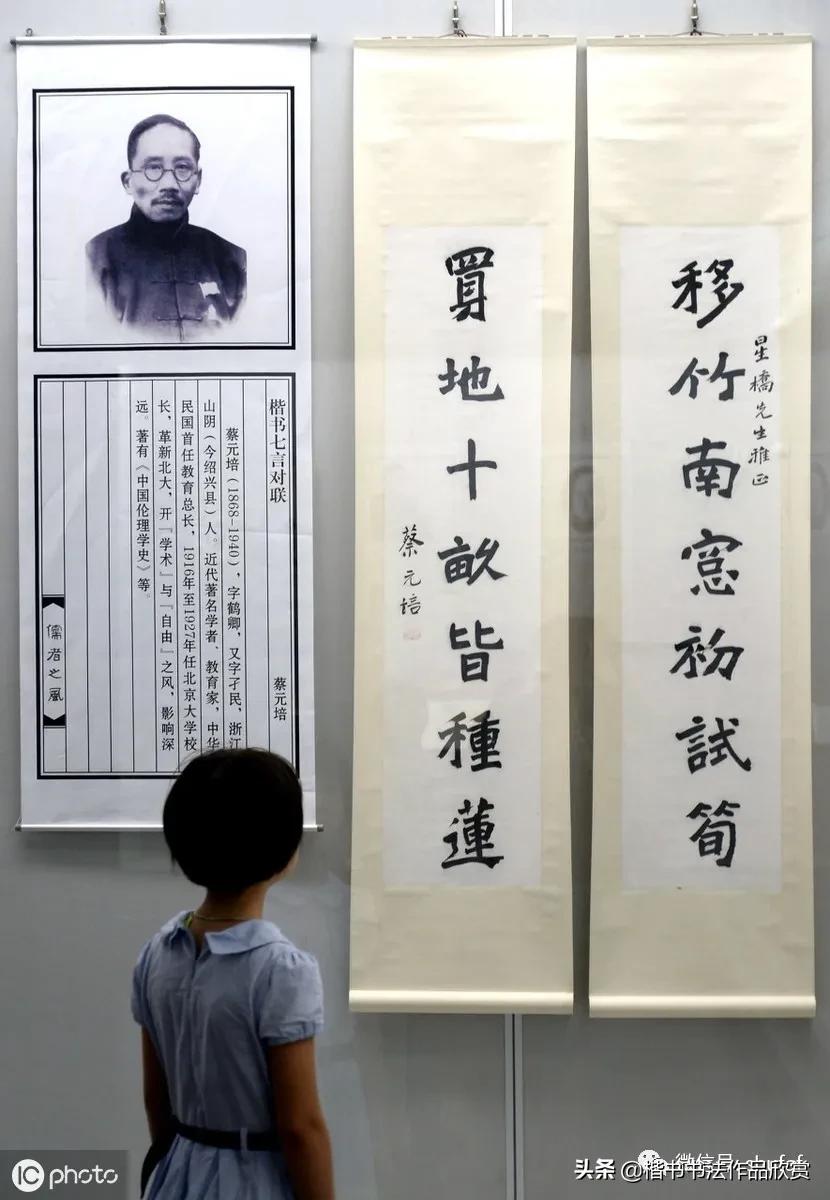 楷书七言对联
蔡元培
蔡元培（1868-1940），字鹤卿，又字孑民，浙江
山阴（今绍兴县）人。近代著名学者、教育家，中华
民国首任教育总长，1916年至1927年任北京大学校
长，革新北大，开『学术』与『自由』之风，影响深
远。著有《中国伦理学史》等。
儒者之風
移竹南窓初試筍
星橋先生雅正
買地十畝皆種蓮
蔡元培
iC photo
微信号
头条 @楷书书法作品欣赏